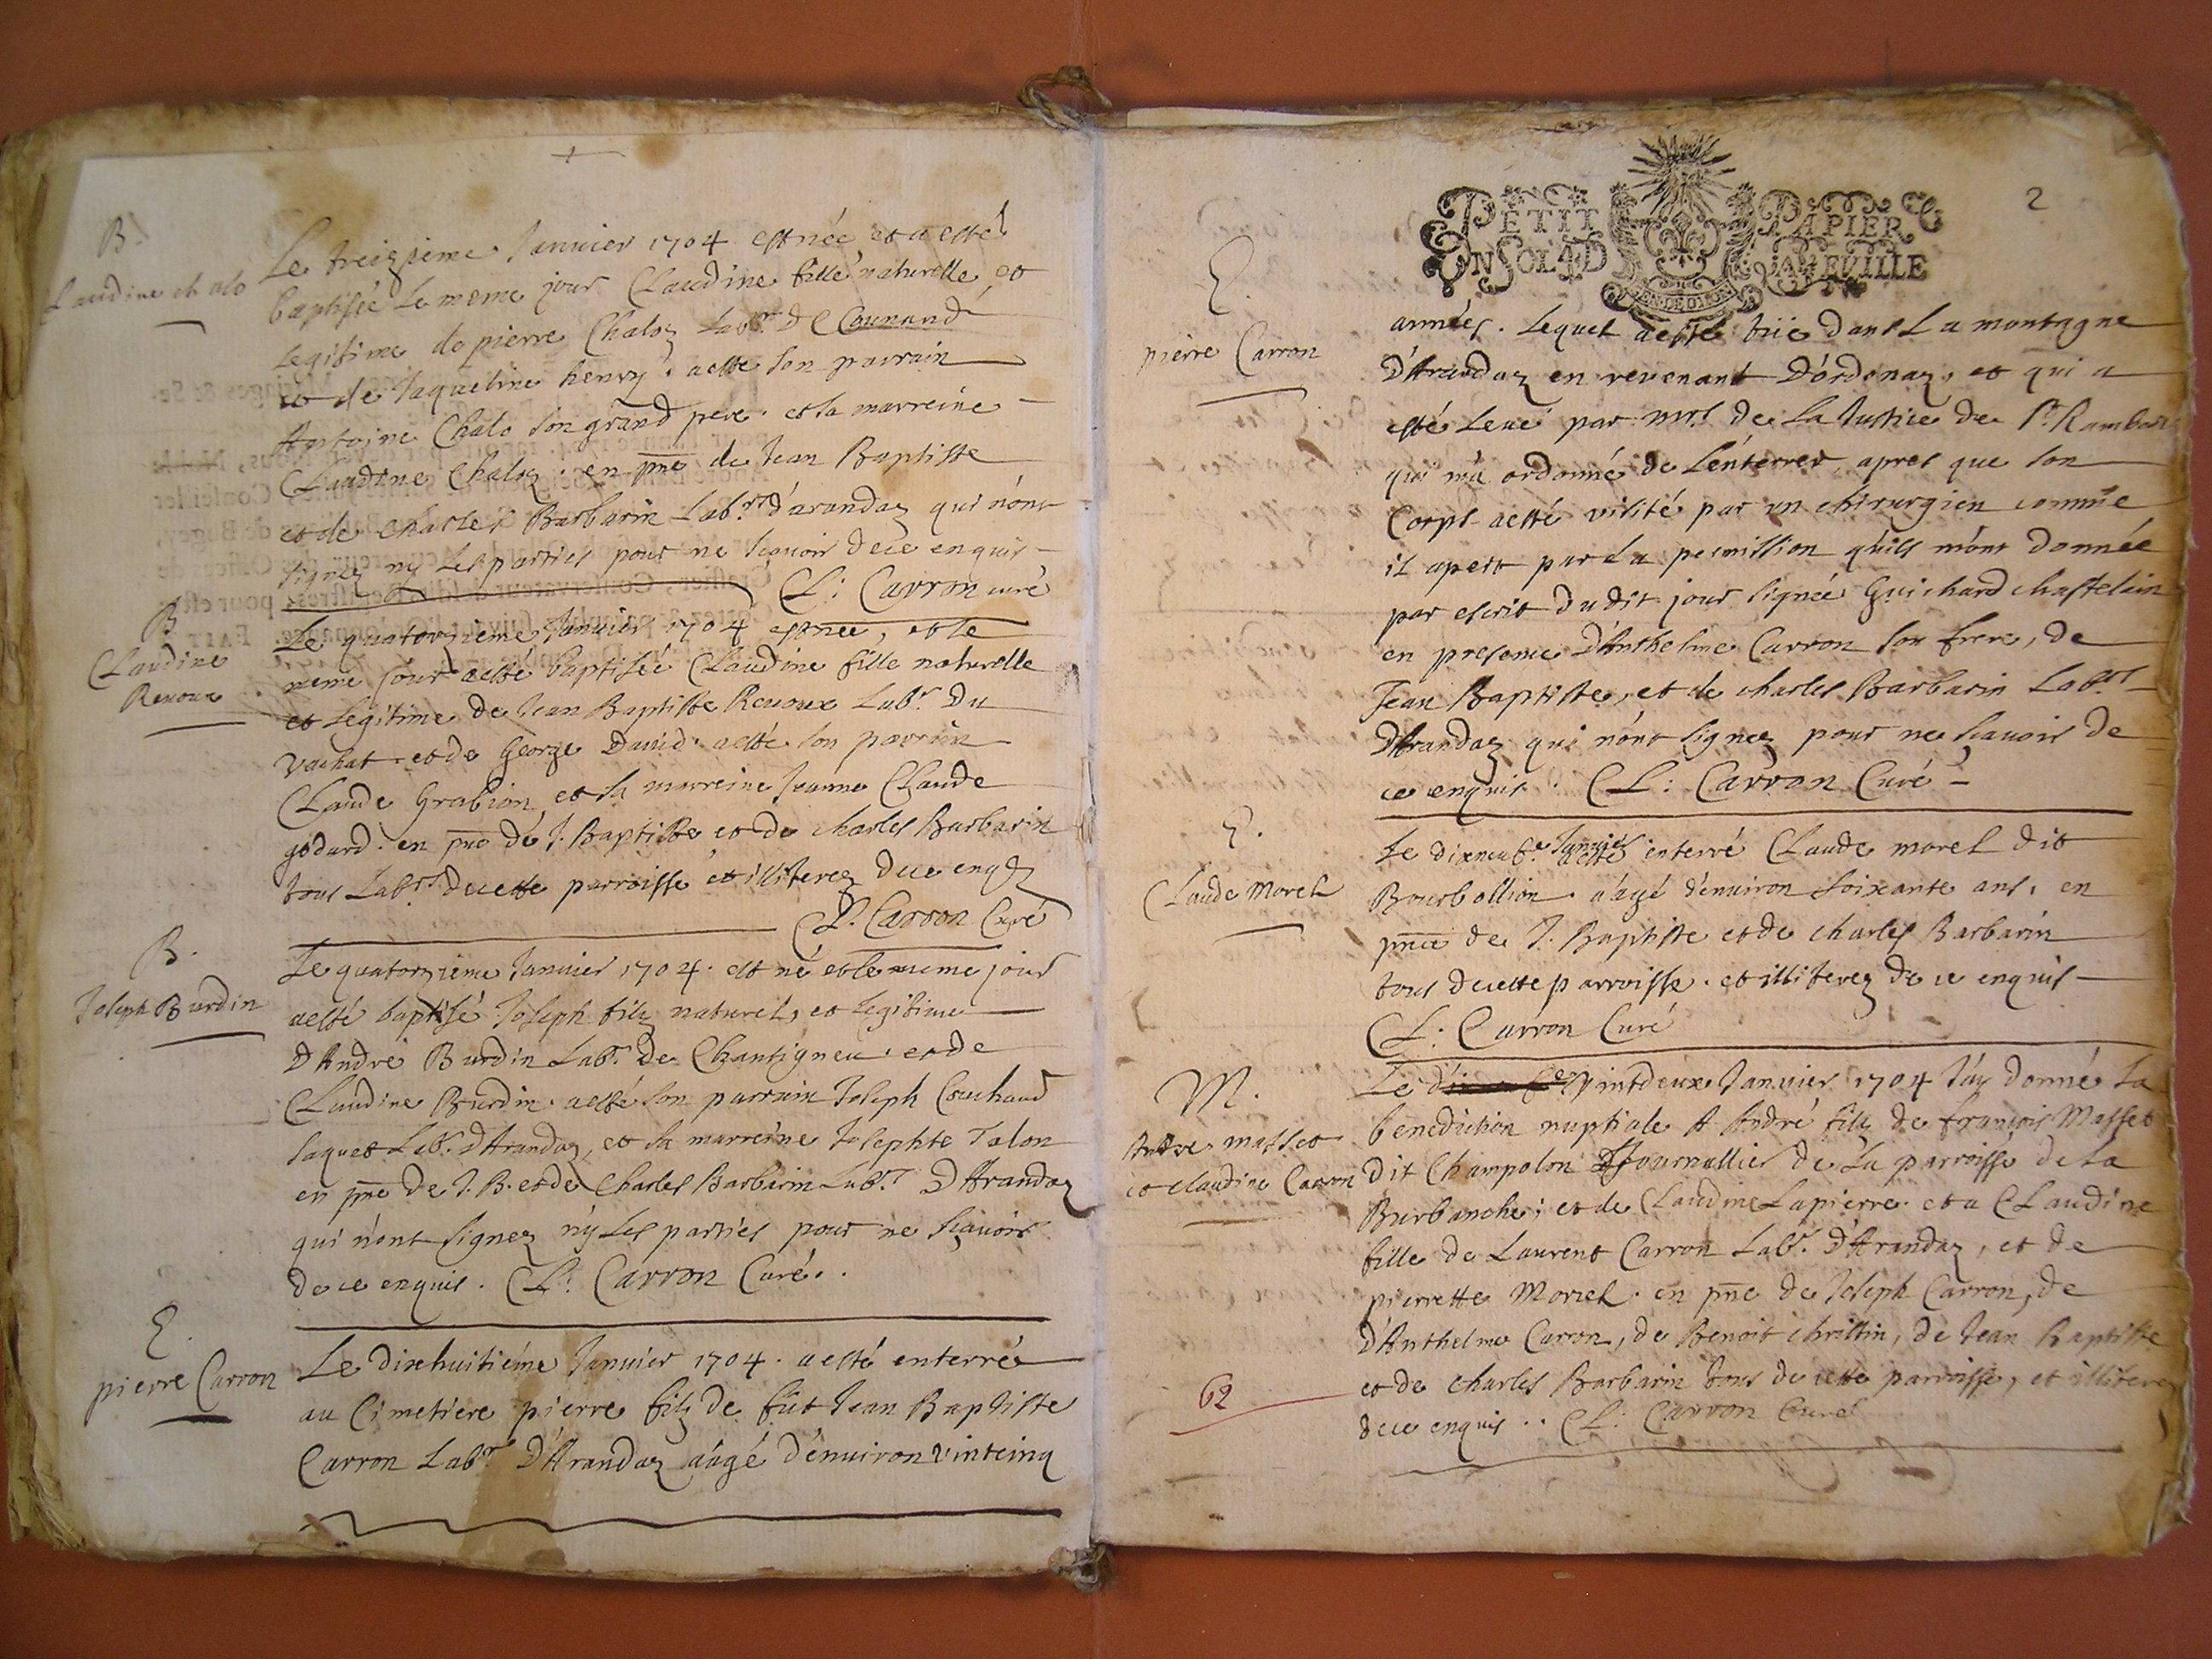 B.
Claudine chalo
Le treizieme Januier 1704 est née et a esté
baptisée le meme jour Claudine fille naturelle et
legitime de pierre Chaloz Labr. De Counand
et de Jaqueline henry. a esté son parrain
Antoine Chalo son grand pere. et sa marreine
Claudine Chaloz. en pñce de Jean Baptiste
et de Charles Barbarin Labrs. d'arandaz qui n'ont
signez ny les parties pour ne sçauoir de ce enquis
CL: Carron curé
B
Claudine
Renoux
Le quatorzieme Januier 1704 est née, et le
meme jour a esté baptisée Claudine fille naturelle
et legitime de Jean Baptiste Renoux Labr. Du
Vachat. et de George Dauid. a esté son parrain
Claude Grabion et sa marreine Jeanne Claude
godard. en pñce de J. Baptiste et de charles Barbarin
tous Labrs. de cette parroisse et illiterez de ce enqz
CL. Carron Curé
B.
Joseph Burdin
Le quatorzieme Januier 1704. est né et le meme jour
a esté baptisé Joseph filz naturel, et legitime
D'André Burdin Labr. de Chantigneu. et de
Claudine Burdin. a esté son parrain Joseph Couchaud
Jaquet Labr. d'Arandaz, et sa marreine Josephte Talon
en pñce de J. B. et de Charles Barbarin Labrs. D'Arandaz
qui n'ont signez ny les parties pour ne sçauoir
de ce enquis. CL: Carron Curé.
E.
pierre Carron
Le dixhuitiéme Januier 1704. a esté enterré
au Cimetiere pierre filz de fût Jean Baptiste
Carron Labr. D'Arandaz aágé d'enuiron vintcinq
2
PETIT PAPIER
UN SOL 4 D LA FEUILLE
GEN. DE DIJON
E.
pierre Carron
années. Lequel a esté tüé dans La montagne
D'Arandaz en reuenant D'ordonaz, et qui a
esté leué par mrs. de La Justice de St. Rambert
qui m'a ordonné de L'enterrer, apres que son
Corps a esté visité par un chirurgien comme
il apert par La permission qu'ils m'ont donnée
par escrit du dit jour signée Guichard chastelain
en presence D'Anthelme Carron son frere, de
Jean Baptiste, et de charles Barbarin Labrs.
D'Arandaz qui n'ont signez pour ne sçauoir de
ce enquis. CL: Carron Curé
E.
Claude Morel
Le dixneufe. Januier a esté enterré Claude morel dit
Bourbollion. aágé d'enuiron soixante ans. en
pñce de J. Baptiste et de charles Barbarin
tous de cette parroisse. et illiterez de ce enquis
CL: Carron Curé
M.
Andre masset
et claudine Carron
Le vintdeux Januier 1704 J'ay donné La
benediction nuptiale A André filz de françois Masset
dit Champolon Journallier de La parroisse de La
Burbanche; et de Claudine Lapierre. et a Claudine
fille de Laurent Carron Labr. D'Arandaz, et de
pierrette Morel. en pñce de Joseph Carron, de
D'Anthelme Carron, de Benoit christin, de Jean Baptiste
et de charles Barbarin tous de cette parroisse, et illiterez
de ce enquis.. CL: Carron Curé
62